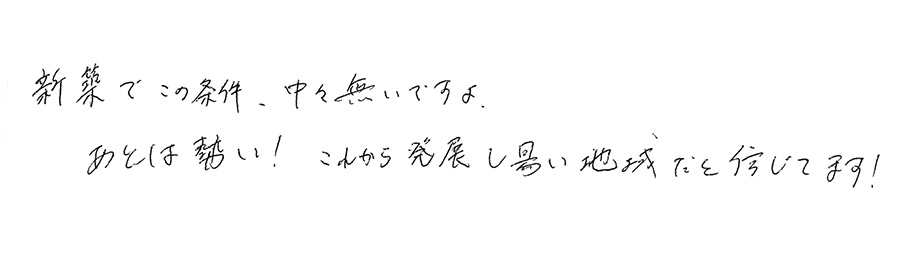 新築でこの条件、中々無いですよ、
あとは勢い！ これから発展し易い地域だと信じてます！